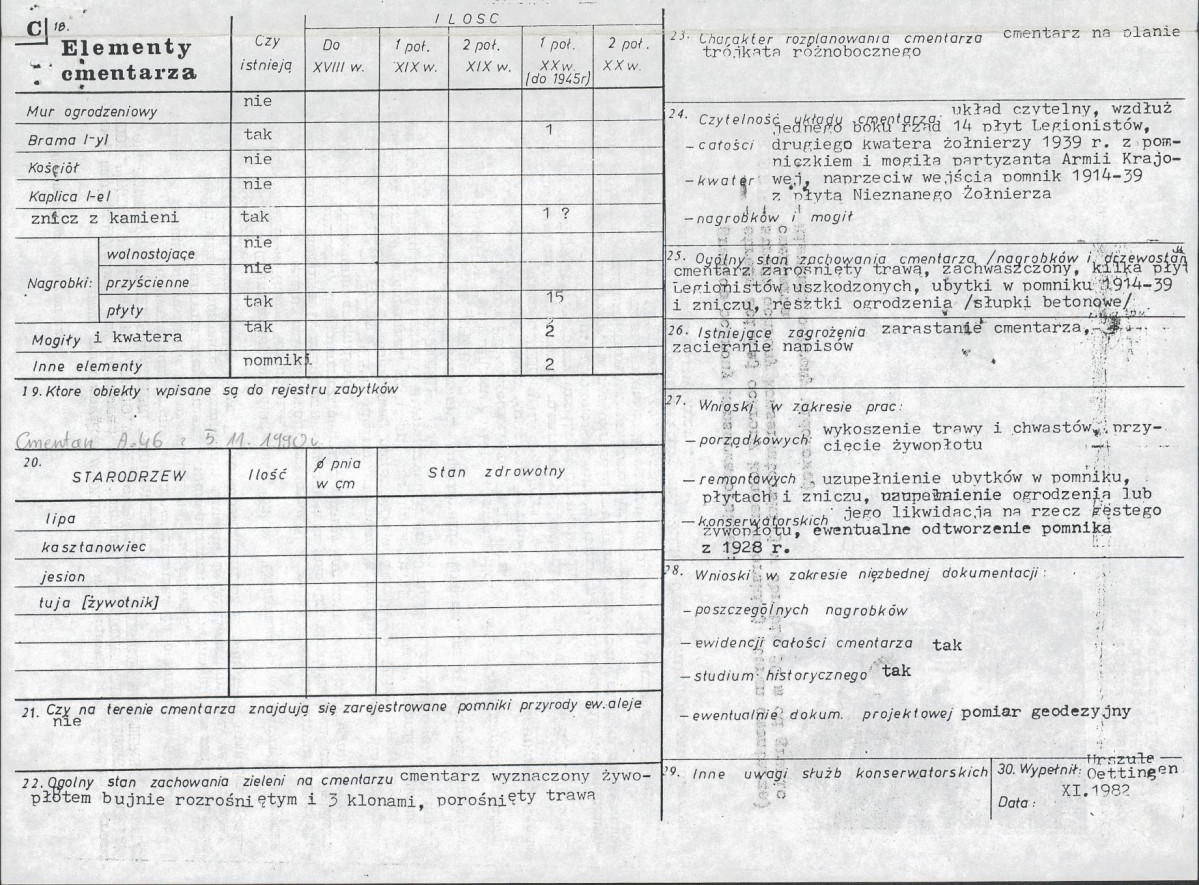 C 18.
Elementy
cmentarza
Czy
istnieją
ILOSC
Do
XVIII w.
1 poł.
XIX w.
2 poł.
XIX w.
1 poł.
XX w.
(do 1945r)
2 poł.
XX w.
Mur ogrodzeniowy nie
Brama /-y/ tak 1
Kościół nie
Kaplica /-e/ nie
znicz z kamieni tak 1 ?
Nagrobki: wolnostojące nie
przyścienne nie
płyty tak 15
Mogiły i kwatera tak 2
Inne elementy pomniki 2
19. Ktore obiekty wpisane są do rejestru zabytków
Cmentarz A.46 z 5. 11. 1990 r.
20.
STARODRZEW
Ilość
ø pnia
w cm
Stan zdrowotny
lipa
kasztanowiec
jesion
tuja [żywotnik]
21. Czy na terenie cmentarza znajdują się zarejestrowane pomniki przyrody ew. aleje
nie
22. Ogolny stan zachowania zieleni na cmentarzu cmentarz wyznaczony żywo-
płotem bujnie rozrośniętym i 3 klonami, porośnięty trawą
23. Charakter rozplanowania cmentarza cmentarz na planie
trójkąta różnobocznego
24. Czytelność układu cmentarza: układ czytelny, wzdłuż
jednego boku rząd 14 płyt Legionistów,
– całości drugiego kwatera żołnierzy 1939 r. z pom-
niczkiem i mogiła partyzanta Armii Krajo-
– kwater wej, naprzeciw wejścia pomnik 1914-39
z płytą Nieznanego Żołnierza
– nagrobków i mogił
25. Ogólny stan zachowania cmentarza /nagrobków i drzewostanu
cmentarz zarośnięty trawą, zachwaszczony, kilka płyt
Legionistów uszkodzonych, ubytki w pomniku 1914-39
i zniczu, resztki ogrodzenia /słupki betonowe/
26. Istniejące zagrożenia zarastanie cmentarza,
zacieranie napisów
27. Wnioski w zakresie prac:
– porządkowych wykoszenie trawy i chwastów, przy-
cięcie żywopłotu
– remontowych uzupełnienie ubytków w pomniku,
płytach i zniczu, uzupełnienie ogrodzenia lub
– konserwatorskich jego likwidacja na rzecz gęstego
żywopłotu, ewentualne odtworzenie pomnika
z 1928 r.
28. Wnioski w zakresie niezbednej dokumentacji:
– poszczególnych nagrobków
– ewidencji całości cmentarza tak
– studium historycznego tak
– ewentualnie dokum. projektowej pomiar geodezyjny
29. Inne uwagi służb konserwatorskich
30. Wypełnił: Urszula
Oettingen
XI.1982
Data: